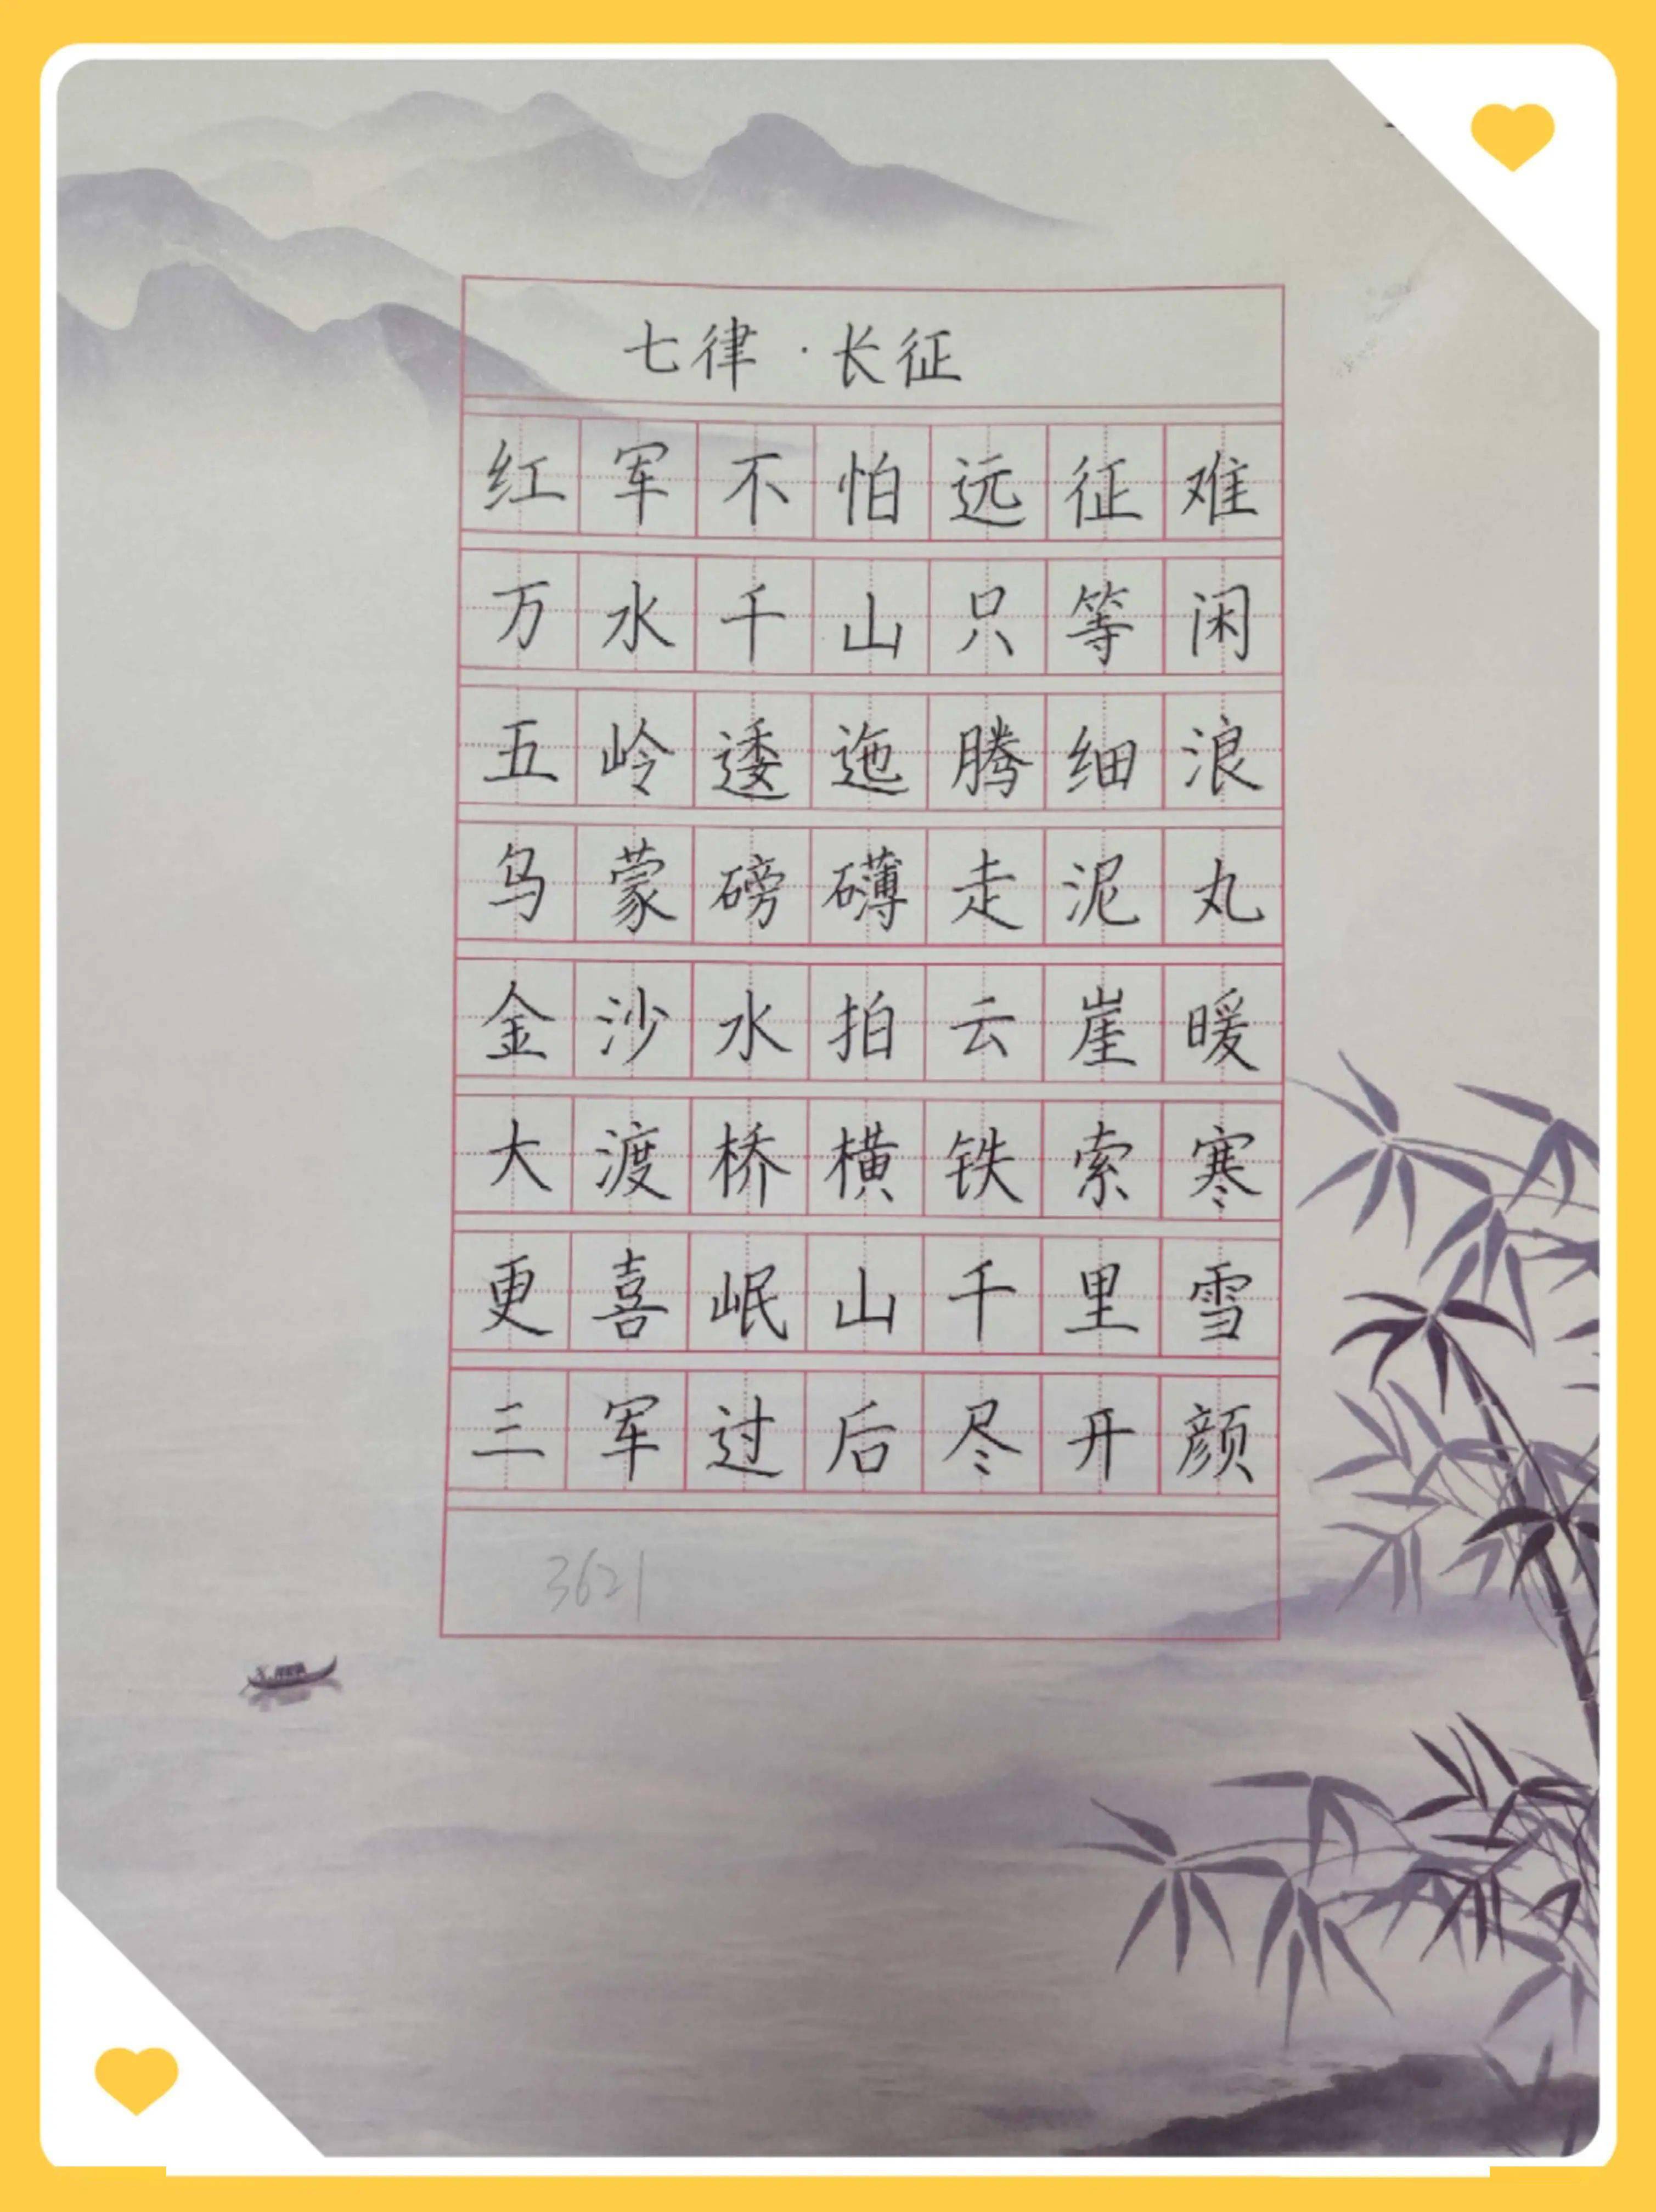 七律·长征
红军不怕远征难
万水千山只等闲
五岭逶迤腾细浪
乌蒙磅礴走泥丸
金沙水拍云崖暖
大渡桥横铁索寒
更喜岷山千里雪
三军过后尽开颜
3621